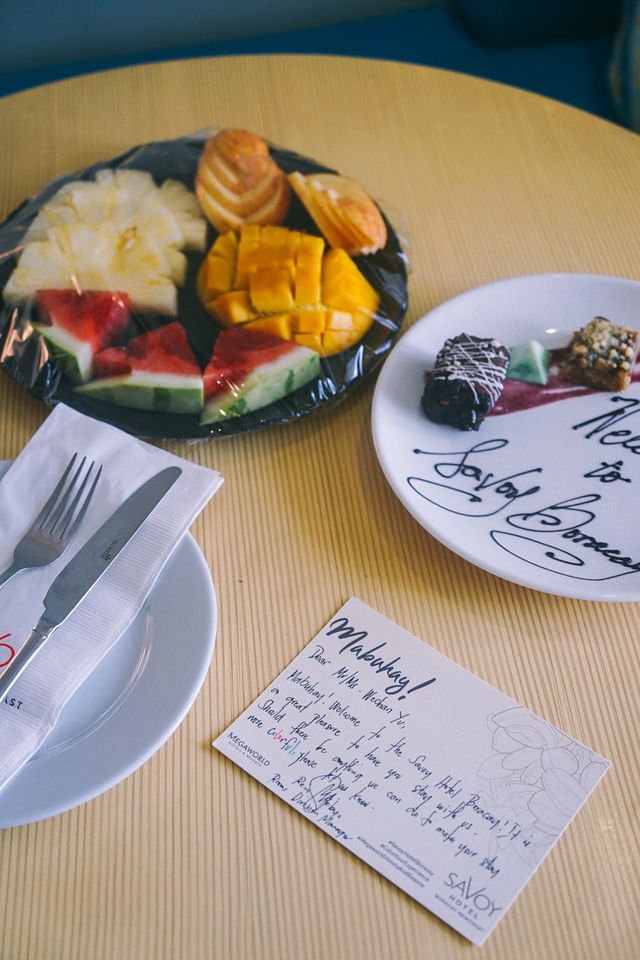 Welc
to
Savoy Boracay
AST
Mabuhay!
Dear Mr/Ms. Weehan Yu,
Mabuhay! Welcome to the Savoy Hotel Boracay! It is
a great pleasure to have you stay with us.
Should there be anything we can do to make your stay
more colorful, please let us know.
Rooms Division Manager
MEGAWORLD
HOTELS & RESORTS
#SavoyHotelBoracay
#ColorYourExperience
#MegaworldHotelsAndResorts
SAVOY
HOTEL
BORACAY NEWCOAST